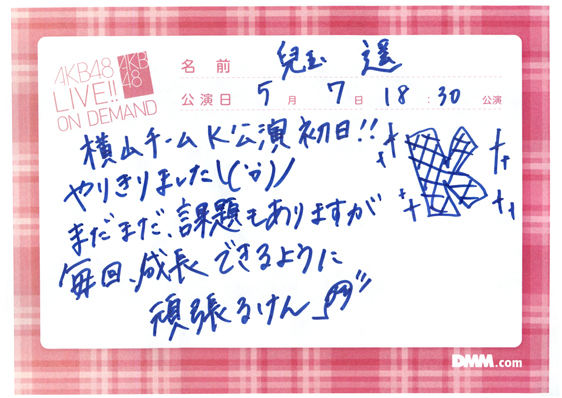 AKB48
LIVE!!
ON DEMAND
AKB
48
名前 兒玉 遥
公演日 5月 7日 18:30 公演
横山チームK公演初日!!
やりきりました\('o')/
まだまだ、課題もありますが
毎回、成長できるように
頑張るけん
K
DMM.com